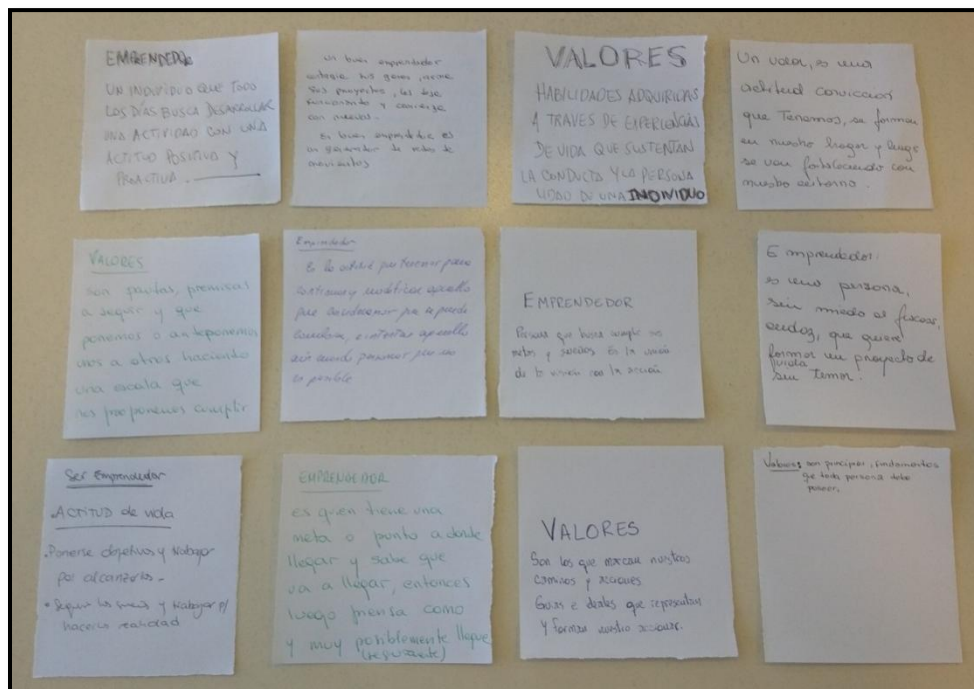 EMPRENDEDOR
UN INDIVIDUO QUE TODO
LOS DÍAS BUSCA DESARROLLAR
UNA ACTIVIDAD CON UNA
ACTITUD POSITIVA Y
PROACTIVA.
Un buen emprendedor
sus ganas,
sus proyectos, los
funcionando y comienza
con nuevos.
Un buen emprendedor es
un generador de redes de
movimientos
VALORES
HABILIDADES ADQUIRIDAS
A TRAVES DE EXPERIENCIAS
DE VIDA QUE SUSTENTAN
LA CONDUCTA Y LA PERSONA
LIDAD DE UN INDIVIDUO
Un valor, es una
actitud convicción
que Tenemos, se forman
en nuestro hogar y luego
se van fortaleciendo con
nuestro entorno.
VALORES
son pautas, premisas
a seguir y que
ponemos o anteponemos
unos a otros haciendo
una escala que
nos proponemos cumplir
Emprendedor
Es la actitud que tenemos para
aquello
que consideramos que se puede
e intentar aquello
aún cuando pensamos que no
es posible
EMPRENDEDOR
Persona que busca cumplir sus
metas y sueños. Es la unión
de la visión con la acción
Emprendedor:
es una persona,
sin miedo al fracaso,
audaz, que quiere
formar un proyecto de
vida
sin temor.
Ser Emprendedor
.ACTITUD de vida
.Ponerse objetivos y trabajar
por alcanzarlos.-
• Seguir los sueños y trabajar p/
hacerlos realidad
EMPRENDEDOR
es quien tiene una
meta o punto a donde
llegar y sabe que
va a llegar, entonces
luego piensa como
y muy posiblemente llegue
(seguramente)
VALORES
Son los que marcan nuestros
caminos y acciones
Guías e ideales que representan
y forman nuestro accionar.
Valores son principios, fundamentos
que toda persona debe
poseer.